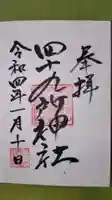 奉拝
四十九所神社
令和四年一月十一日